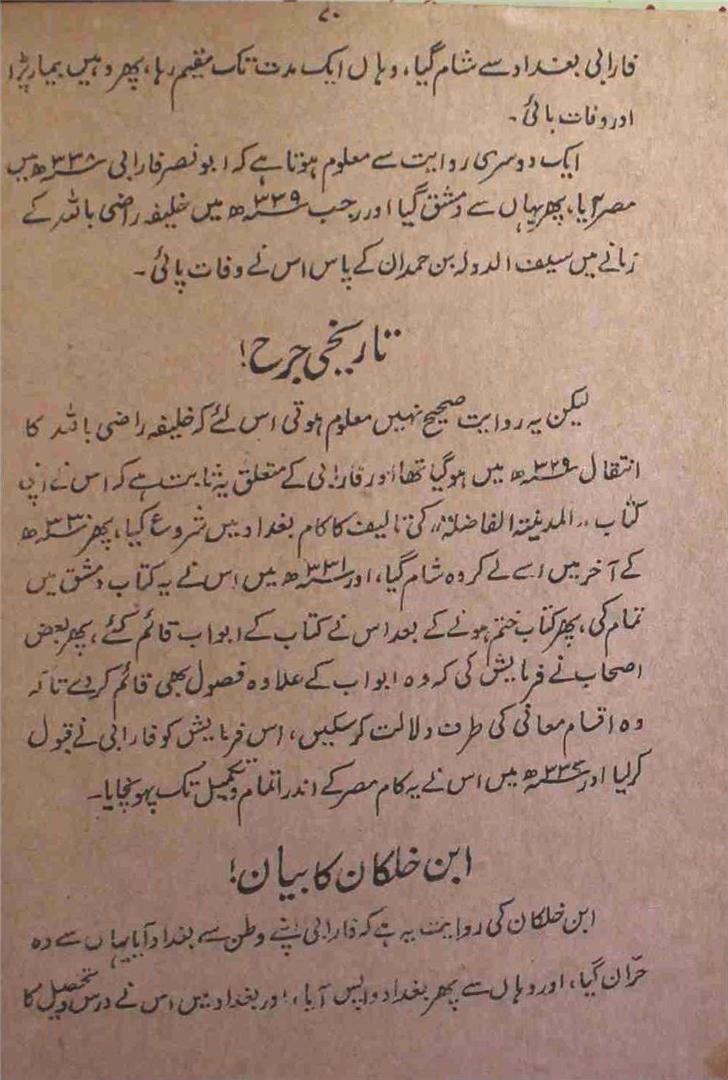 ۷۰
فارابی بغداد سے شام گیا، وہاں ایک مدت تک مقیم رہا، پھر وہیں بیمار پڑا
اور وفات پائی۔
ایک دوسری روایت سے معلوم ہوتا ہے کہ ابو نصر فارابی ۳۳۸ھ میں
مصر آیا، پھر یہاں سے دمشق گیا اور رجب ۳۳۹ھ میں خلیفہ راضی باللہ کے
زمانے میں سیف الدولہ بن حمدان کے پاس اس نے وفات پائی۔
تاریخی جرح!
لیکن یہ روایت صحیح نہیں معلوم ہوتی اس لئے کہ خلیفہ راضی باللہ کا
انتقال ۳۲۹ھ میں ہوگیا تھا اور فارابی کے متعلق یہ ثابت ہے کہ اس نے اپنی
کتاب ،،المدینۃ الفاضلۃ،، کی تالیف کا کام بغداد میں شروع کیا، پھر ۳۳۰ھ
کے آخر میں اسے لے کر وہ شام گیا، اور ۳۳۱ھ میں اس نے یہ کتاب دمشق میں
تمام کی، پھر کتاب ختم ہونے کے بعد اس نے کتاب کے ابواب قائم کئے، پھر بعض
اصحاب نے فرمایش کی کہ وہ ابواب کے علاوہ فصول بھی قائم کر دے تاکہ
وہ اقسام معانی کی طرف دلالت کر سکیں، اس فرمایش کو فارابی نے قبول
کر لیا اور ۳۳۷ھ میں اس نے یہ کام مصر کے اندر اتمام و تکمیل تک پہونچایا۔
ابن خلکان کا بیان!
ابن خلکان کی روایت یہ ہے کہ فارابی اپنے وطن سے بغداد آیا یہاں سے وہ
حرّان گیا، اور وہاں سے پھر بغداد واپس آیا، اور بغداد میں اس نے درس و تحصیل کا